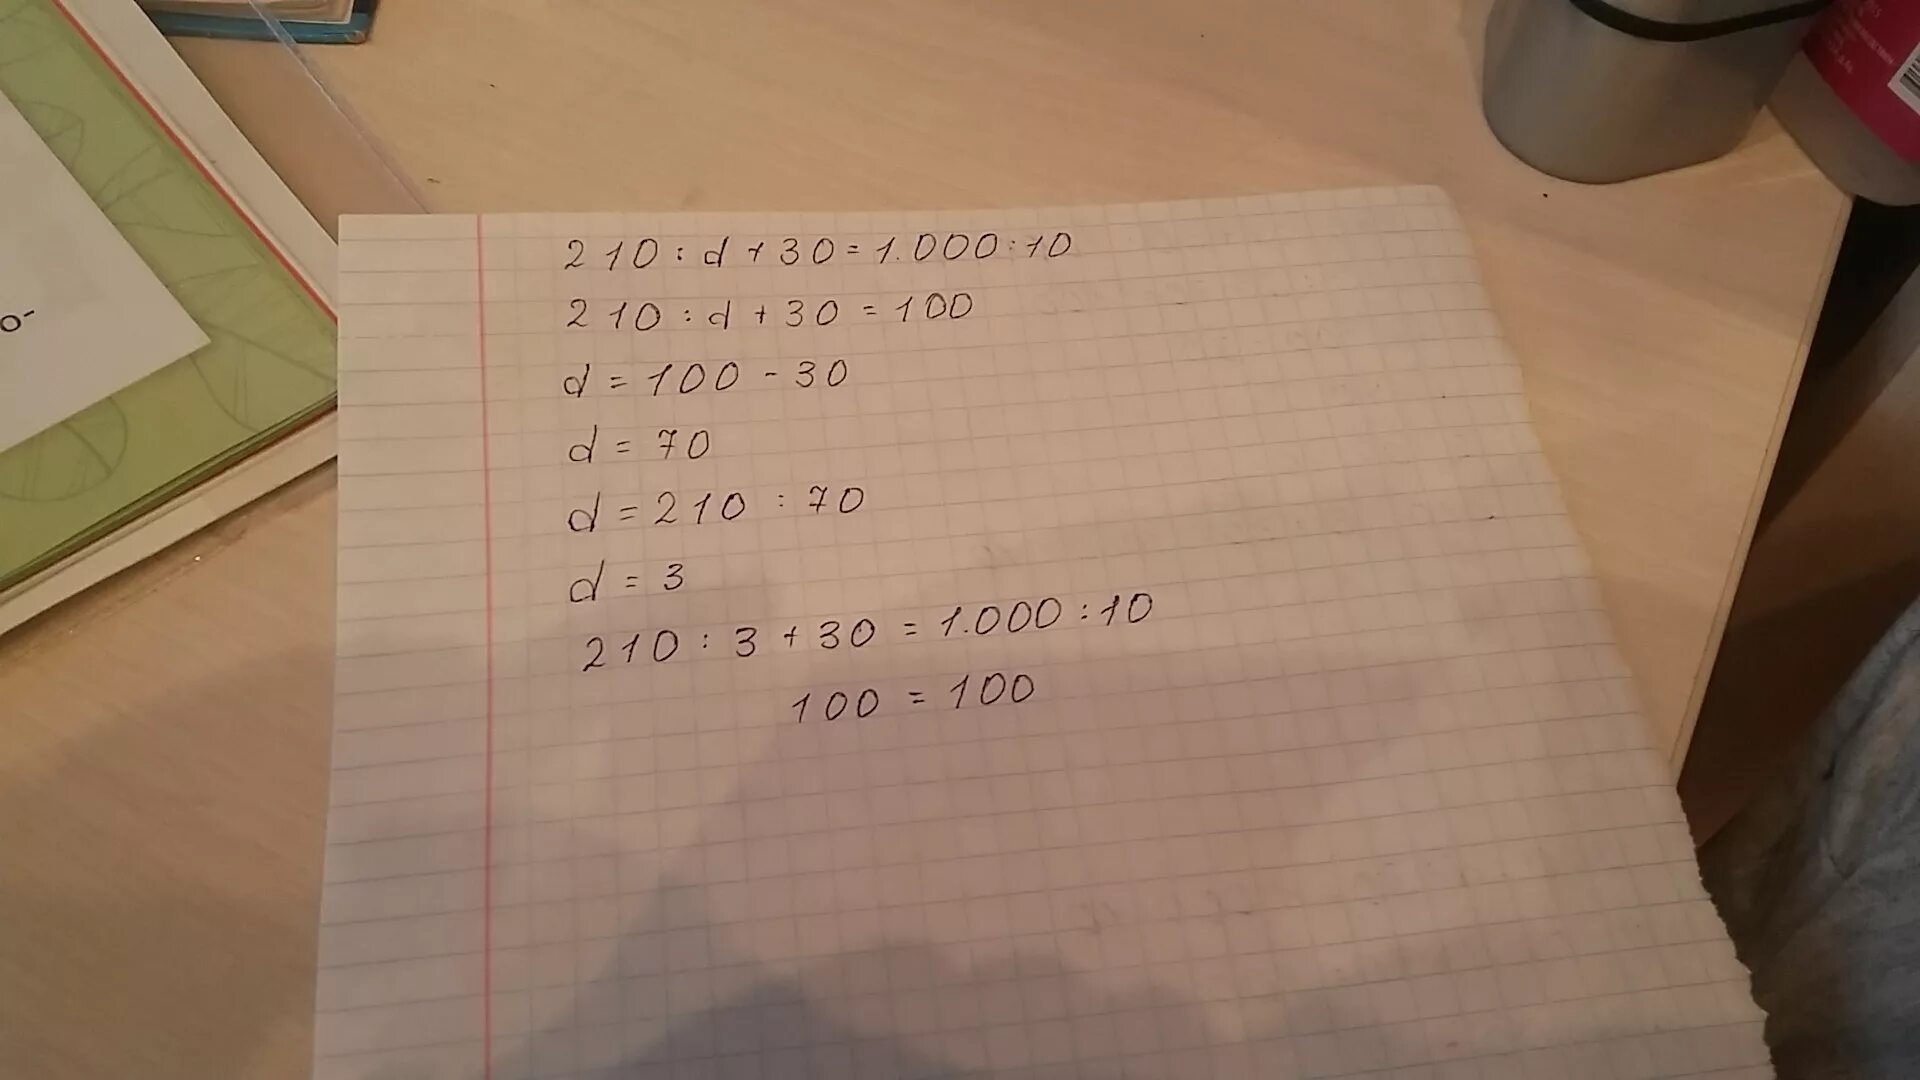 210 : d + 30 = 1.000 : 10
210 : d + 30 = 100
d = 100 - 30
d = 70
d = 210 : 70
d = 3
210 : 3 + 30 = 1.000 : 10
100 = 100
о-